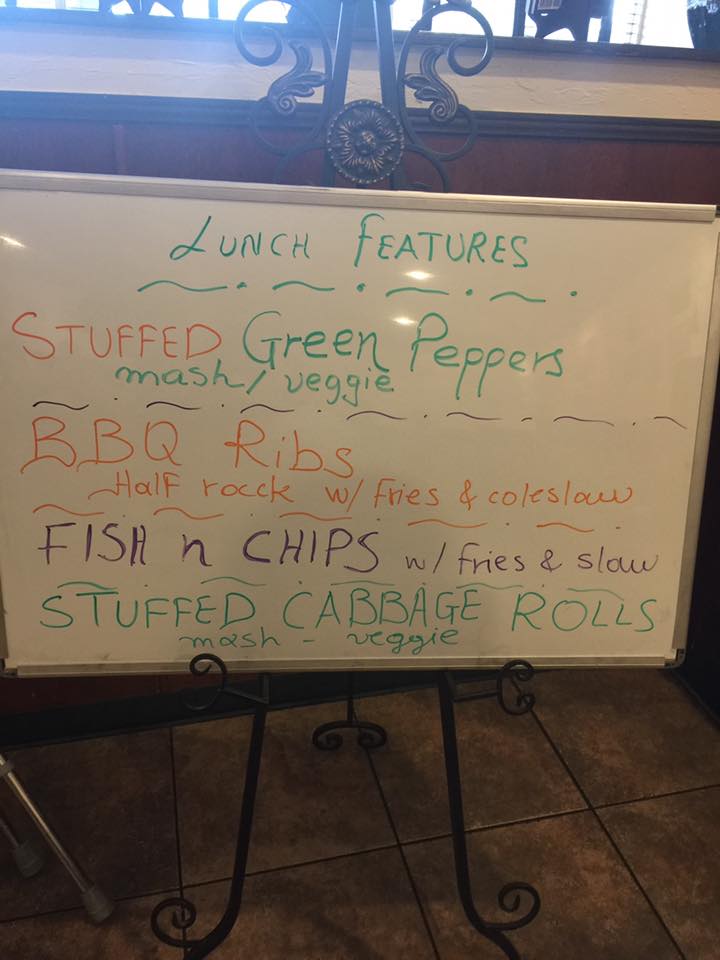 LUNCH FEATURES
STUFFED Green Peppers
mash/ veggie
BBQ Ribs
Half rocck w/ fries & coleslaw
FISH n CHIPS w/ fries & slaw
STUFFED CABBAGE ROLLS
mash - veggie